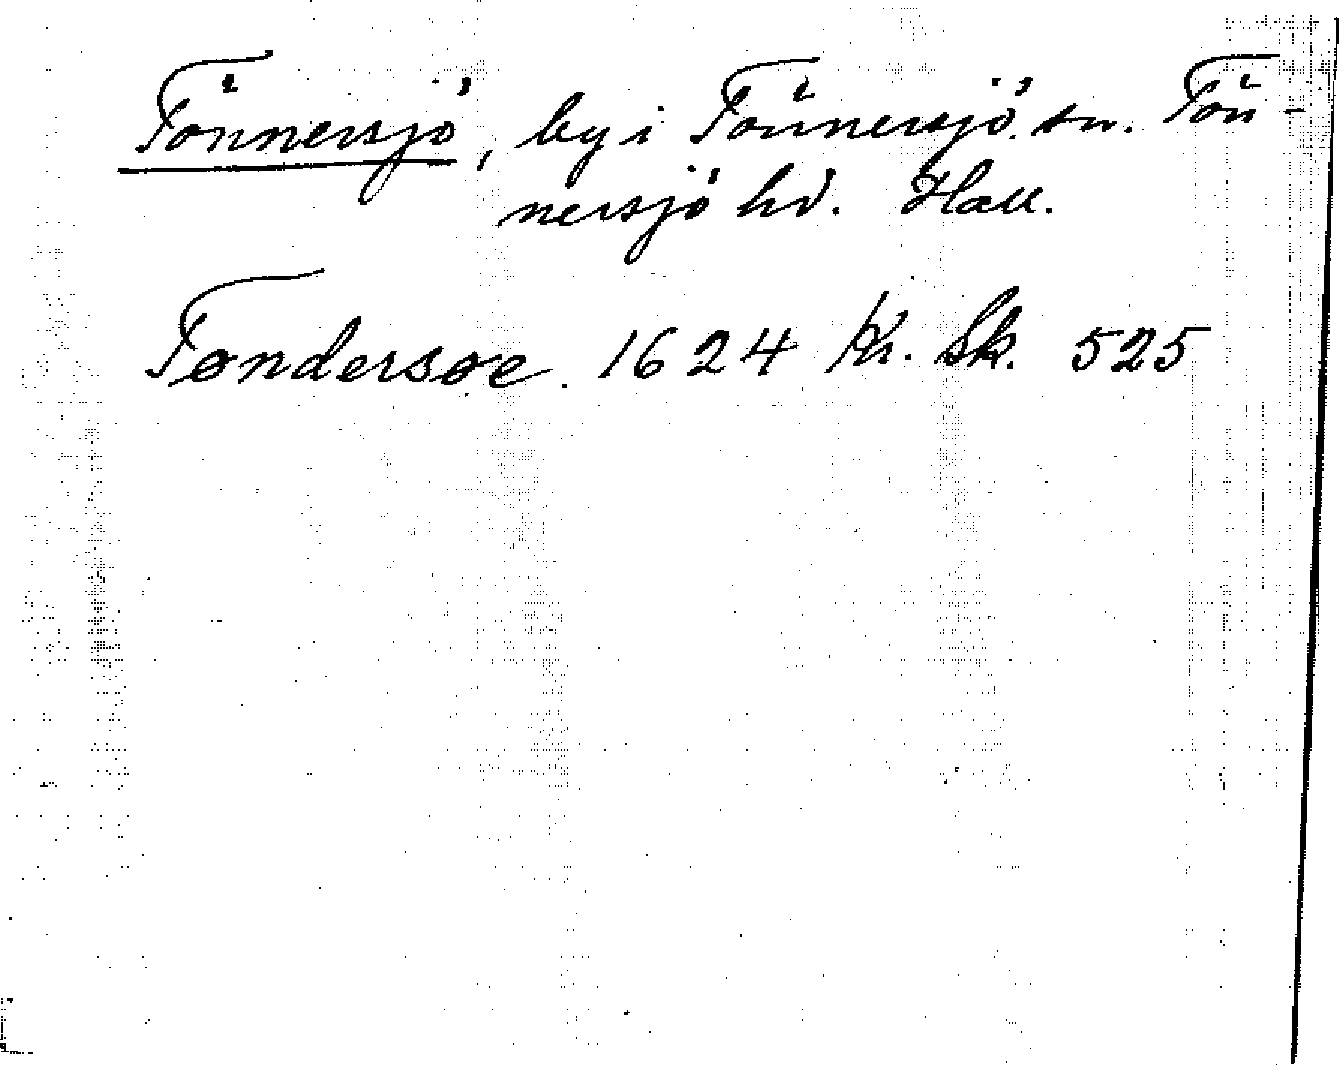 Tönnersjö, by i Tönnersjö sn. Tön-
nersjö hd. Hall.
Tøndersøe 1624 Kr. Sk. 525